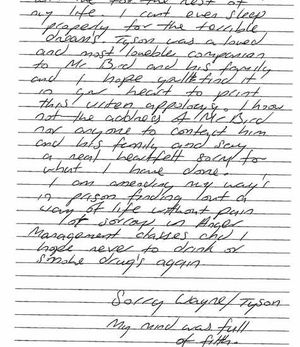 for the rest of
my life I cant even sleep
properly for the terrible
dreams. Tyson was a loved
and most loveble companion
to Mr Bird and his family
and I hope youll find it
in your heart to print
this writen appology. I know
not the address of Mr Bird
nor anyone to contact him
and his family and say
a real heartfelt sorry for
what I have done.
I am amending my way's
in prison finding out a
way of life without pain
or sorrow in Anger
Management classes and I
hope never to drink or
smoke drug's again
Sorry Wayne/Tyson
My mind was full
of filth.